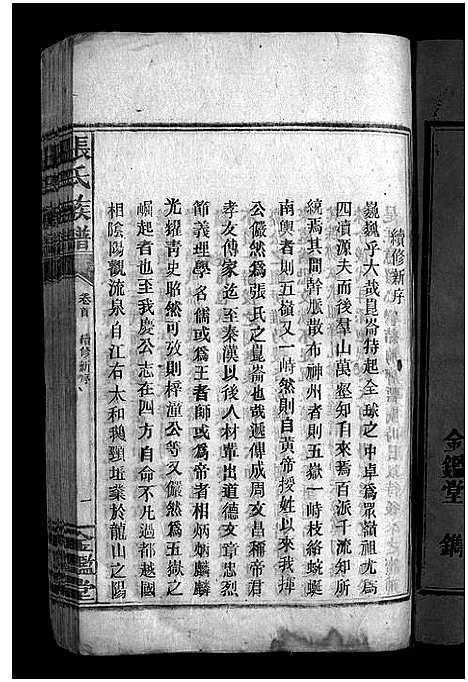 續修新序
巍巍乎大哉崑崙特起全球之中卓爲眾嶺祖尤爲
四瀆源夫而後羣山萬壑知自來焉百派千流知所
統焉其間幹脈散布神州者則五嶽一峙枝絡蜿蜒
南輿者則五嶺又一峙然則自黃帝授姓以來我揮
公儼然爲張氏之崑崙也哉遞傳成周文昌稱帝君
孝友傳家迄至秦漢以後人材輩出道德文章忠烈
節義理學名儒或爲王者師或爲帝者相炳炳麟麟
光耀靑史昭然可攷則梓潼公等又儼然爲五嶽之
崛起者也至我慶公志在四方自命不凡過都越國
相陰陽觀流泉自江右太和鵝頸坵業於龍山之陽
張氏族譜
卷首
續修新序
一
金鑑堂
金鑑堂 鐫